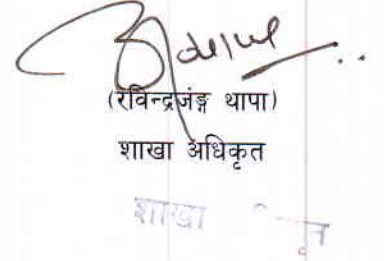 (रविन्द्रजंङ्ग थापा)
शाखा अधिकृत
शाखा